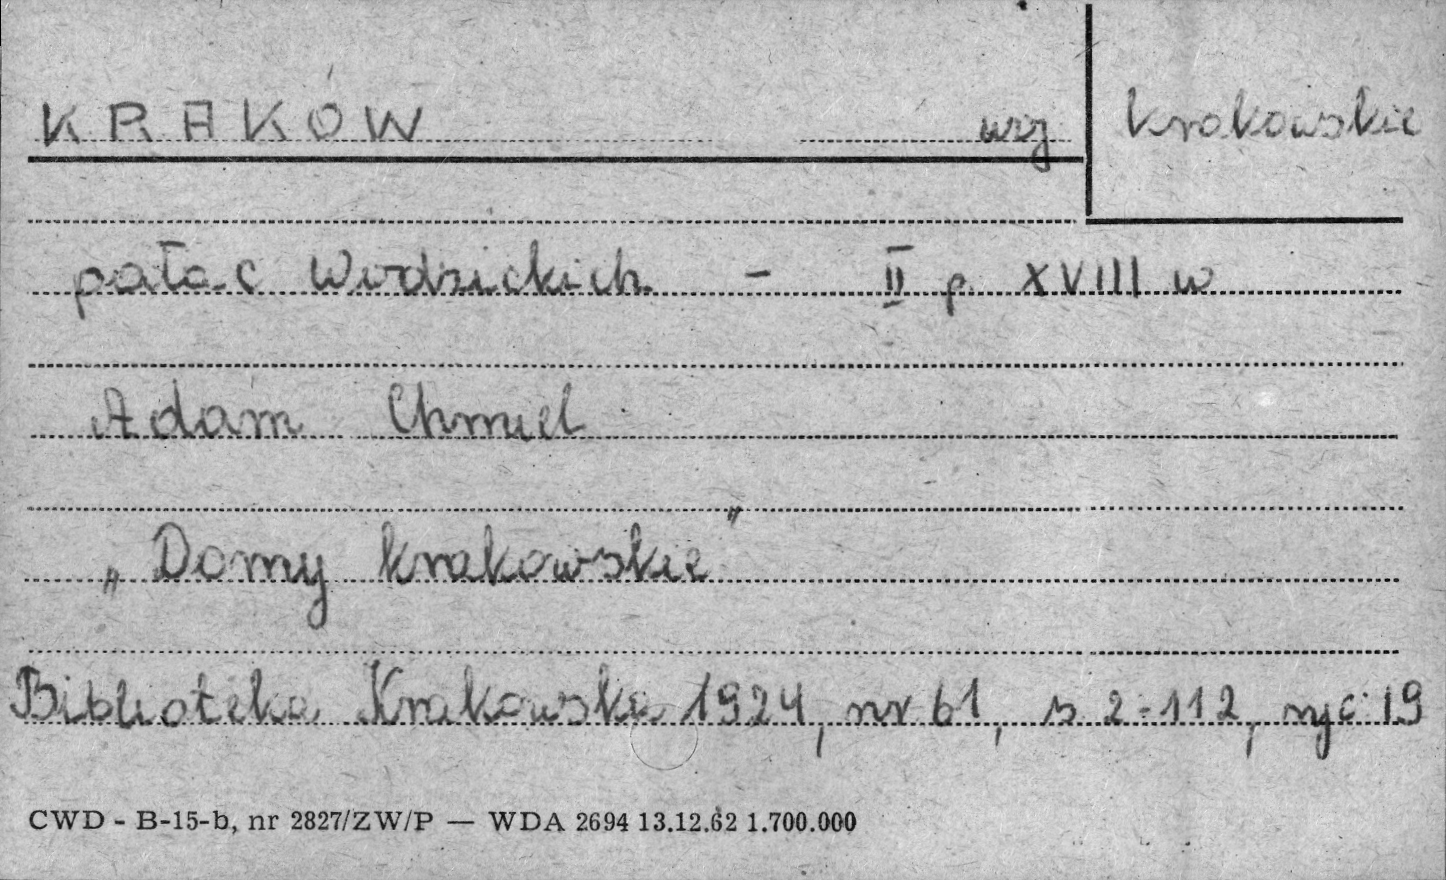 KRAKÓW woj krakowskie
pałac Wodzickich - II p XVIII w
Adam Chmiel
„Domy krakowskie"
Biblioteka Krakowska 1924, nr 61, s 2-112, ryc 19
CWD - B-15-b, nr 2827/ZW/P — WDA 2694 13.12.62 1.700.000